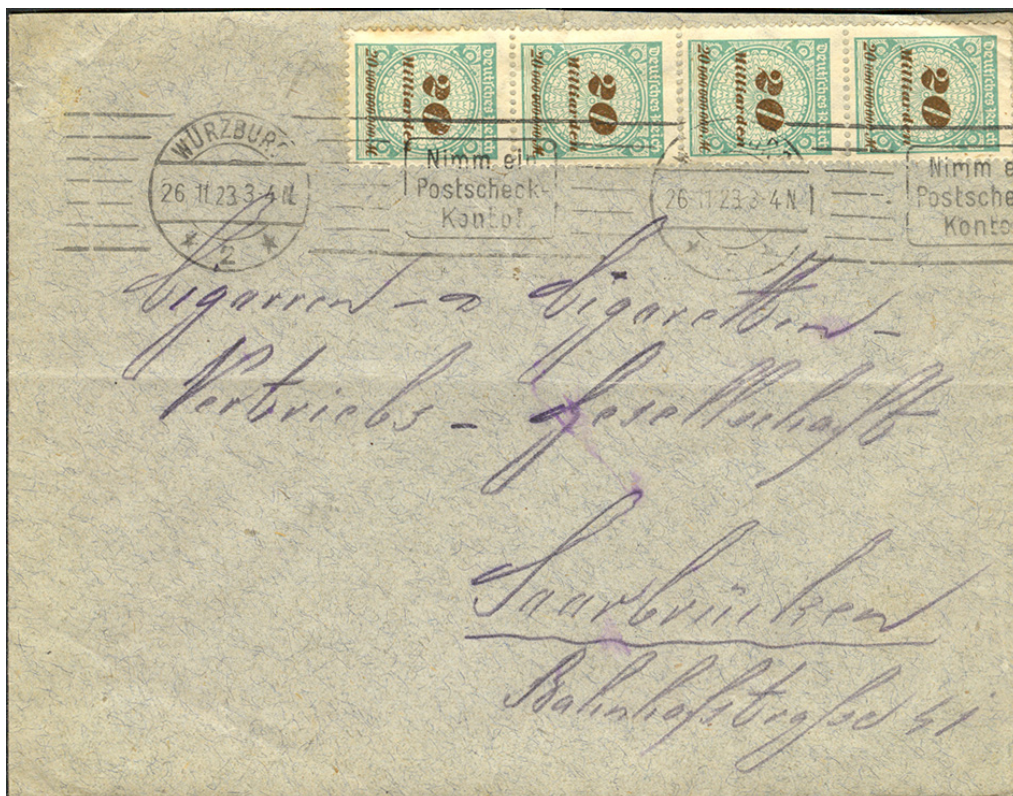 Deutsches Reich
20
Milliarden
20 000 000 000 M
Deutsches Reich
20
Milliarden
20 000 000 000 M
Deutsches Reich
20
Milliarden
20 000 000 000 M
Deutsches Reich
20
Milliarden
20 000 000 000 M
WÜRZBURG
26 11 23 3-4 N
2
Nimm ein
Postscheck-
Konto!
26 11 23 3-4 N
Nimm e
Postsche
Konto
Cigarren - Cigaretten-
Vertriebs - Gesellschaft
Saarbrücken
Bahnhofstraße